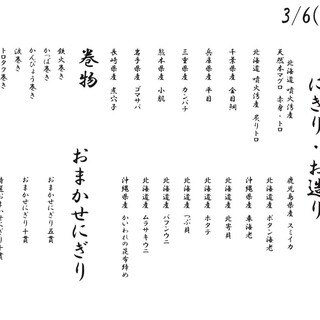 3/6(
にぎり・お造り
北海道 噴火湾産
天然本マグロ 赤身・トロ
北海道 噴火湾産 炙りトロ
千葉県産 金目鯛
兵庫県産 平目
三重県産 カンパチ
熊本県産 小肌
岩手県産 ゴマサバ
長崎県産 煮穴子
鹿児島県産 スミイカ
北海道産 ボタン海老
沖縄県産 車海老
北海道産 北寄貝
北海道産 ホタテ
北海道産 つぶ貝
北海道産 バフンウニ
北海道産 ムラサキウニ
沖縄県産 かいわれの昆布締め
巻物
鉄火巻き
かっぱ巻き
かんぴょう巻き
トロタク巻き
おまかせにぎり
おまかせにぎり五貫
おまかせにぎり十貫